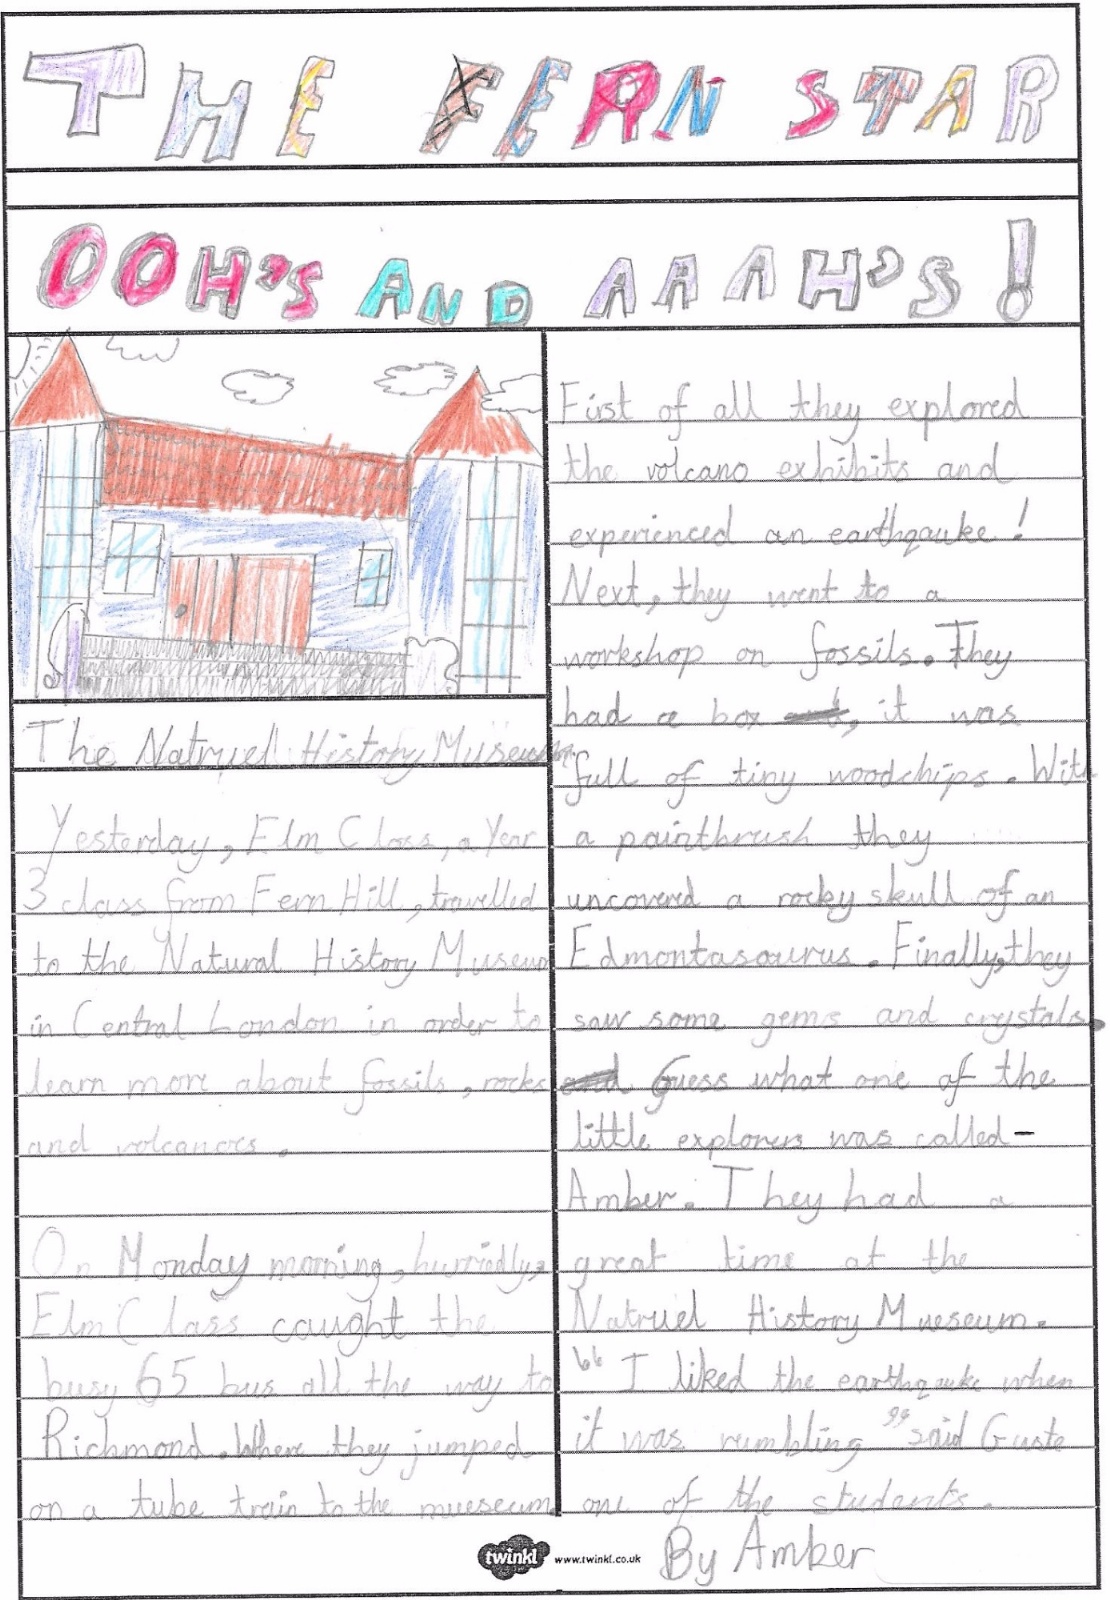 THE FERN STAR
OOH'S AND AAAH'S!
The Natruel History Museum
Yesterday, Elm Class, a Year
3 class from Fern Hill, travelled
to the Natural History Museum
in Central London in order to
learn more about fossils, rocks
and volcanoes.
On Monday morning, hurridly,
Elm Class caught the
busy 65 bus all the way to
Richmond. Where they jumped
on a tube train to the mueseum
First of all they explored
the volcano exhibits and
experienced an earthqauke!
Next, they went to a
workshop on fossils. They
had a box, it was
full of tiny woodchips. With
a paintbrush they
uncovered a rocky skull of an
Edmontasaurus. Finally, they
saw some gems and crystals.
Guess what one of the
little explorers was called-
Amber. They had a
great time at the
Natruel History Mueseum.
"I liked the earthqauke when
it was rumbling" said Guste
one of the students.
twinkl www.twinkl.co.uk By Amber